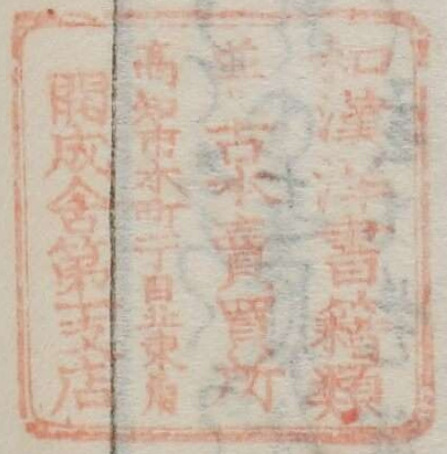 和漢洋書籍類
並古本賣買所
高知市本町一丁目北東角
開成舎第支店